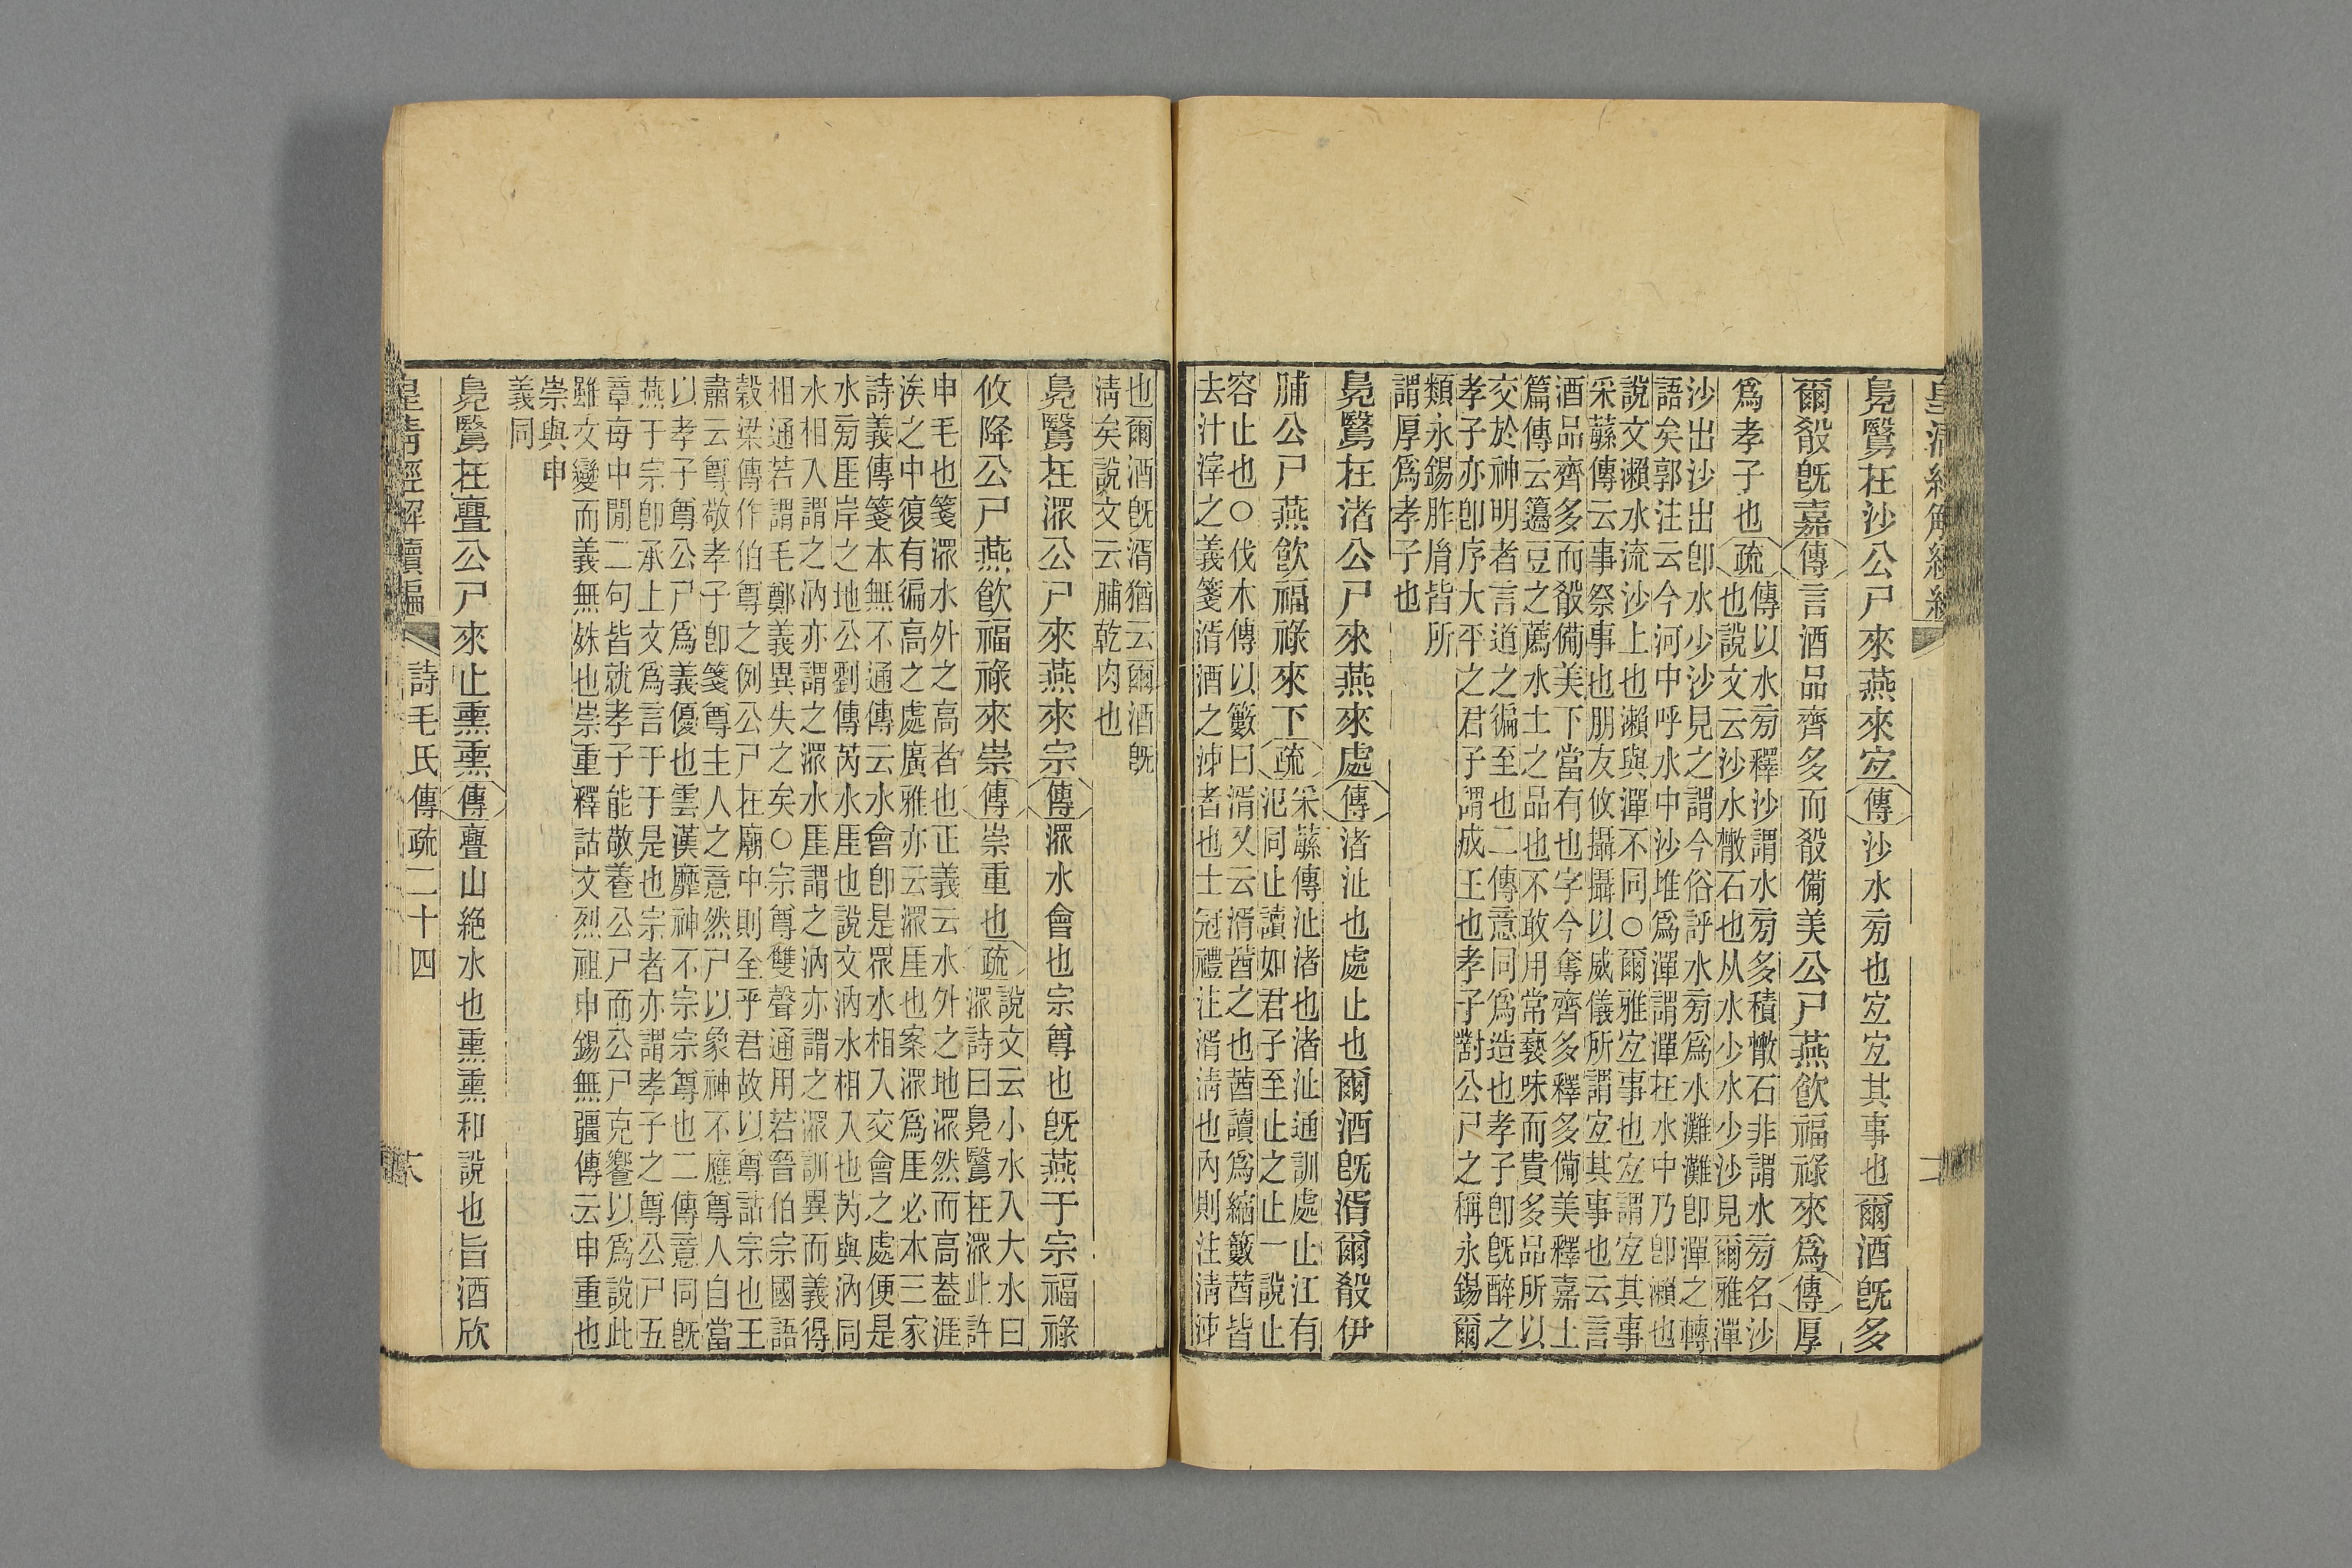 鳧鷖在沙公尸來燕來宐傳沙水㫄也宐宐其事也爾酒旣多
爾殽旣嘉傳言酒品齊多而殽備美公尸燕飮福祿來爲傳厚
爲孝子也疏
傳以水㫄釋沙謂水㫄多積㪚石非謂水㫄名沙
也說文云沙水㪚石也从水少水少沙見爾雅潬
沙出沙出卽水少沙見之謂今俗評水㫄爲水灘灘卽潬之轉
語矣郭注云今河中呼水中沙堆爲潬謂潬在水中乃卽瀨也
說文瀨水流沙上也瀨與潬不同○爾雅宐事也宐謂宐其事
采蘩傳云事祭事也朋友攸攝攝以威儀所謂宐其事也云言
酒品齊多而殽備美下當有也字今奪齊多釋多備美釋嘉士
篇傳云籩豆之薦水土之品也不敢用常褻味而貴多品所以
交於神明者言道之徧至也二傳意同爲造也孝子卽旣醉之
孝子亦卽序大平之君子謂成王也孝子對公尸之稱永錫爾
類永錫胙胤皆所
謂厚爲孝子也
鳧鷖在渚公尸來燕來處傳渚沚也處止也爾酒旣湑爾殽伊
脯公尸燕飮福祿來下疏
采蘩傳沚渚也渚沚通訓處止江有
汜同止讀如君子至止之止一說止
容止也○伐木傳以籔曰湑又云湑茜之也茜讀爲縮籔茜皆
去汁滓之義箋湑酒之泲者也士冠禮注湑淸也內則注淸泲
也爾酒旣湑猶云爾酒旣
淸矣說文云脯乾肉也
鳧鷖在潀公尸來燕來宗傳潀水會也宗尊也旣燕于宗福祿
攸降公尸燕飮福祿來崇傳崇重也疏
說文云小水入大水曰
潀詩曰鳧鷖在潀此許
申毛也箋潀水外之高者也正義云水外之地潀然而高蓋涯
涘之中復有徧高之處廣雅亦云潀厓也案潀爲厓必本三家
詩義傳箋本無不通傳云水會卽是眾水相入交會之處便是
水㫄厓岸之地公劉傳芮水厓也說文汭水相入也芮與汭同
水相入謂之汭亦謂之潀水厓謂之汭亦謂之潀訓異而義得
相通若謂毛鄭義異失之矣○宗尊雙聲通用若晉伯宗國語
穀梁傳作伯尊之例公尸在廟中則至乎君故以尊詁宗也王
肅云尊敬孝子卽箋尊主人之意然尸以象神不應尊人自當
以孝子尊公尸爲義優也雲漢靡神不宗宗尊也二傳意同旣
燕于宗卽承上文爲言于于是也宗者亦謂孝子之尊公尸五
章每中閒二句皆就孝子能敬養公尸而公尸克饗以爲說此
雖文變而義無殊也崇重釋詁文烈祖申錫無疆傳云申重也
崇與申
義同
鳧鷖在亹公尸來止熏熏傳亹山絕水也熏熏和說也旨酒欣
皇淸經解續編
詩毛氏傳疏二十四